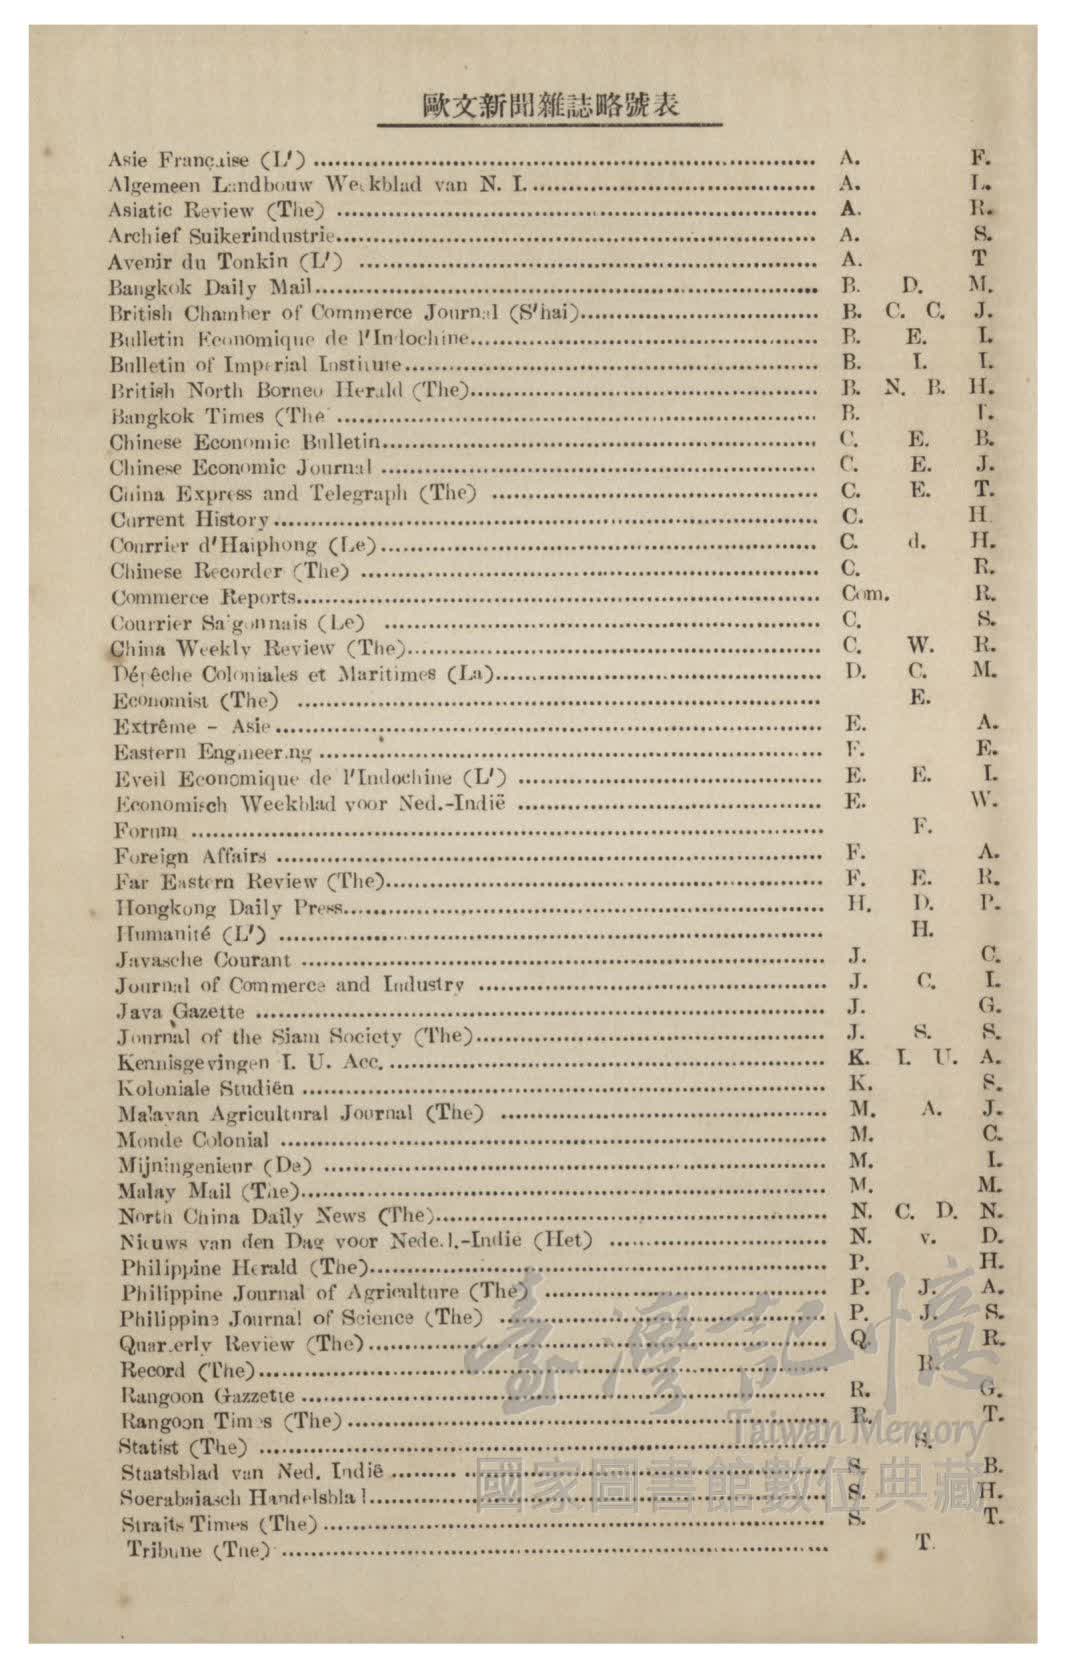 歐文新聞雜誌略號表
Asie Française (L') A. F.
Algemeen Landbouw Weekblad van N. I. A. L.
Asiatic Review (The) A. R.
Archief Suikerindustrie A. S.
Avenir du Tonkin (L') A. T
Bangkok Daily Mail B. D. M.
British Chamber of Commerce Journal (S'hai) B. C. C. J.
Bulletin Economique de l'Indochine B. E. I.
Bulletin of Imperial Institute B. I. I.
British North Borneo Herald (The) B. N. B. H.
Bangkok Times (The B. T.
Chinese Economic Bulletin C. E. B.
Chinese Economic Journal C. E. J.
China Express and Telegraph (The) C. E. T.
Current History C. H
Courrier d'Haiphong (Le) C. d. H.
Chinese Recorder (The) C. R.
Commerce Reports Com. R.
Courrier Saigonnais (Le) C. S.
China Weekly Review (The) C. W. R.
Dépêche Coloniales et Maritimes (La) D. C. M.
Economist (The) E.
Extrême - Asie E. A.
Eastern Engineering E. E.
Eveil Economique de l'Indochine (L') E. E. I.
Economisch Weekblad voor Ned.-Indië E. W.
Forum F.
Foreign Affairs F. A.
Far Eastern Review (The) F. E. R.
Hongkong Daily Press H. D. P.
Humanité (L') H.
Javasche Courant J. C.
Journal of Commerce and Industry J. C. I.
Java Gazette J. G.
Journal of the Siam Society (The) J. S. S.
Kennisgevingen I. U. Acc. K. I. U. A.
Koloniale Studiën K. S.
Malayan Agricultural Journal (The) M. A. J.
Monde Colonial M. C.
Mijningenieur (De) M. I.
Malay Mail (The) M. M.
North China Daily News (The) N. C. D. N.
Nieuws van den Dag voor Nederl.-Indië (Het) N. v. D.
Philippine Herald (The) P. H.
Philippine Journal of Agriculture (The) P. J. A.
Philippine Journal of Science (The) P. J. S.
Quarterly Review (The) Q. R.
Record (The) R.
Rangoon Gazzette R. G.
Rangoon Times (The) R. T.
Statist (The) S.
Staatsblad van Ned. Indië S. B.
Soerabaiasch Handelsblad S. H.
Straits Times (The) S. T.
Tribune (The) T.
臺灣記憶
Taiwan Memory
國家圖書館數位典藏